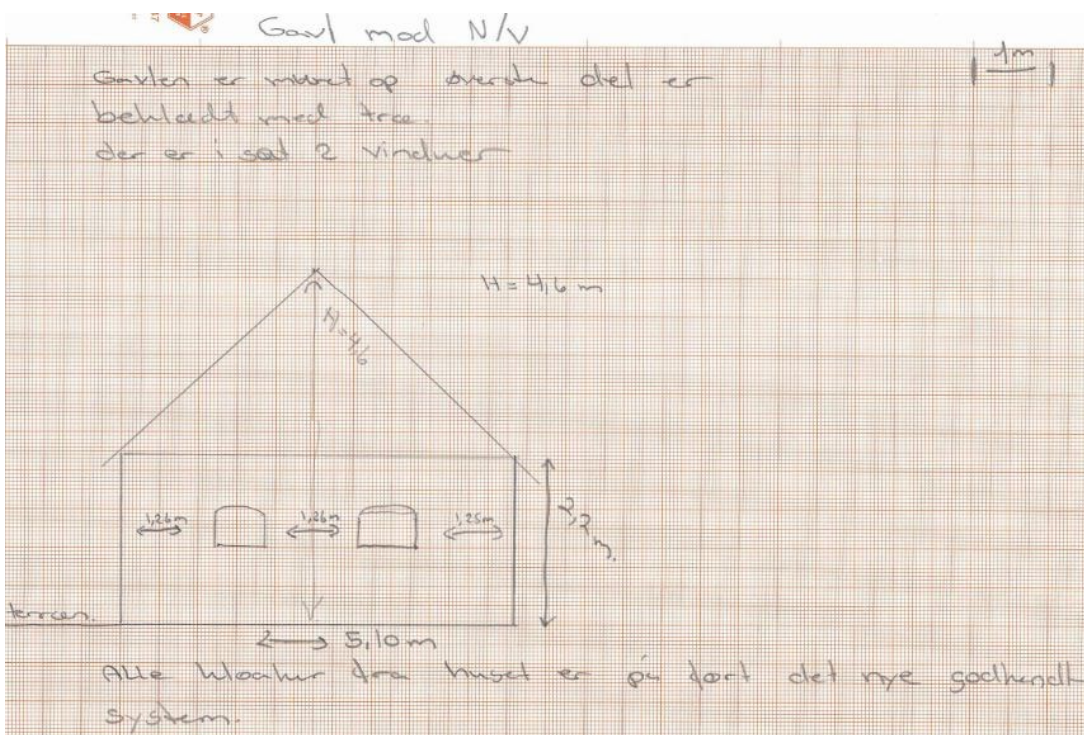 Gavl mod N/V
1m
Gavlen er muret op øverste del er
beklædt med træ.
der er i sat 2 vinduer
H = 4,6 m
H=4,6
1,26m 1,26m 1,25m
2,2 m.
terræn.
5,10m
Alle kloakker fra huset er på ført det nye godkendt
system.